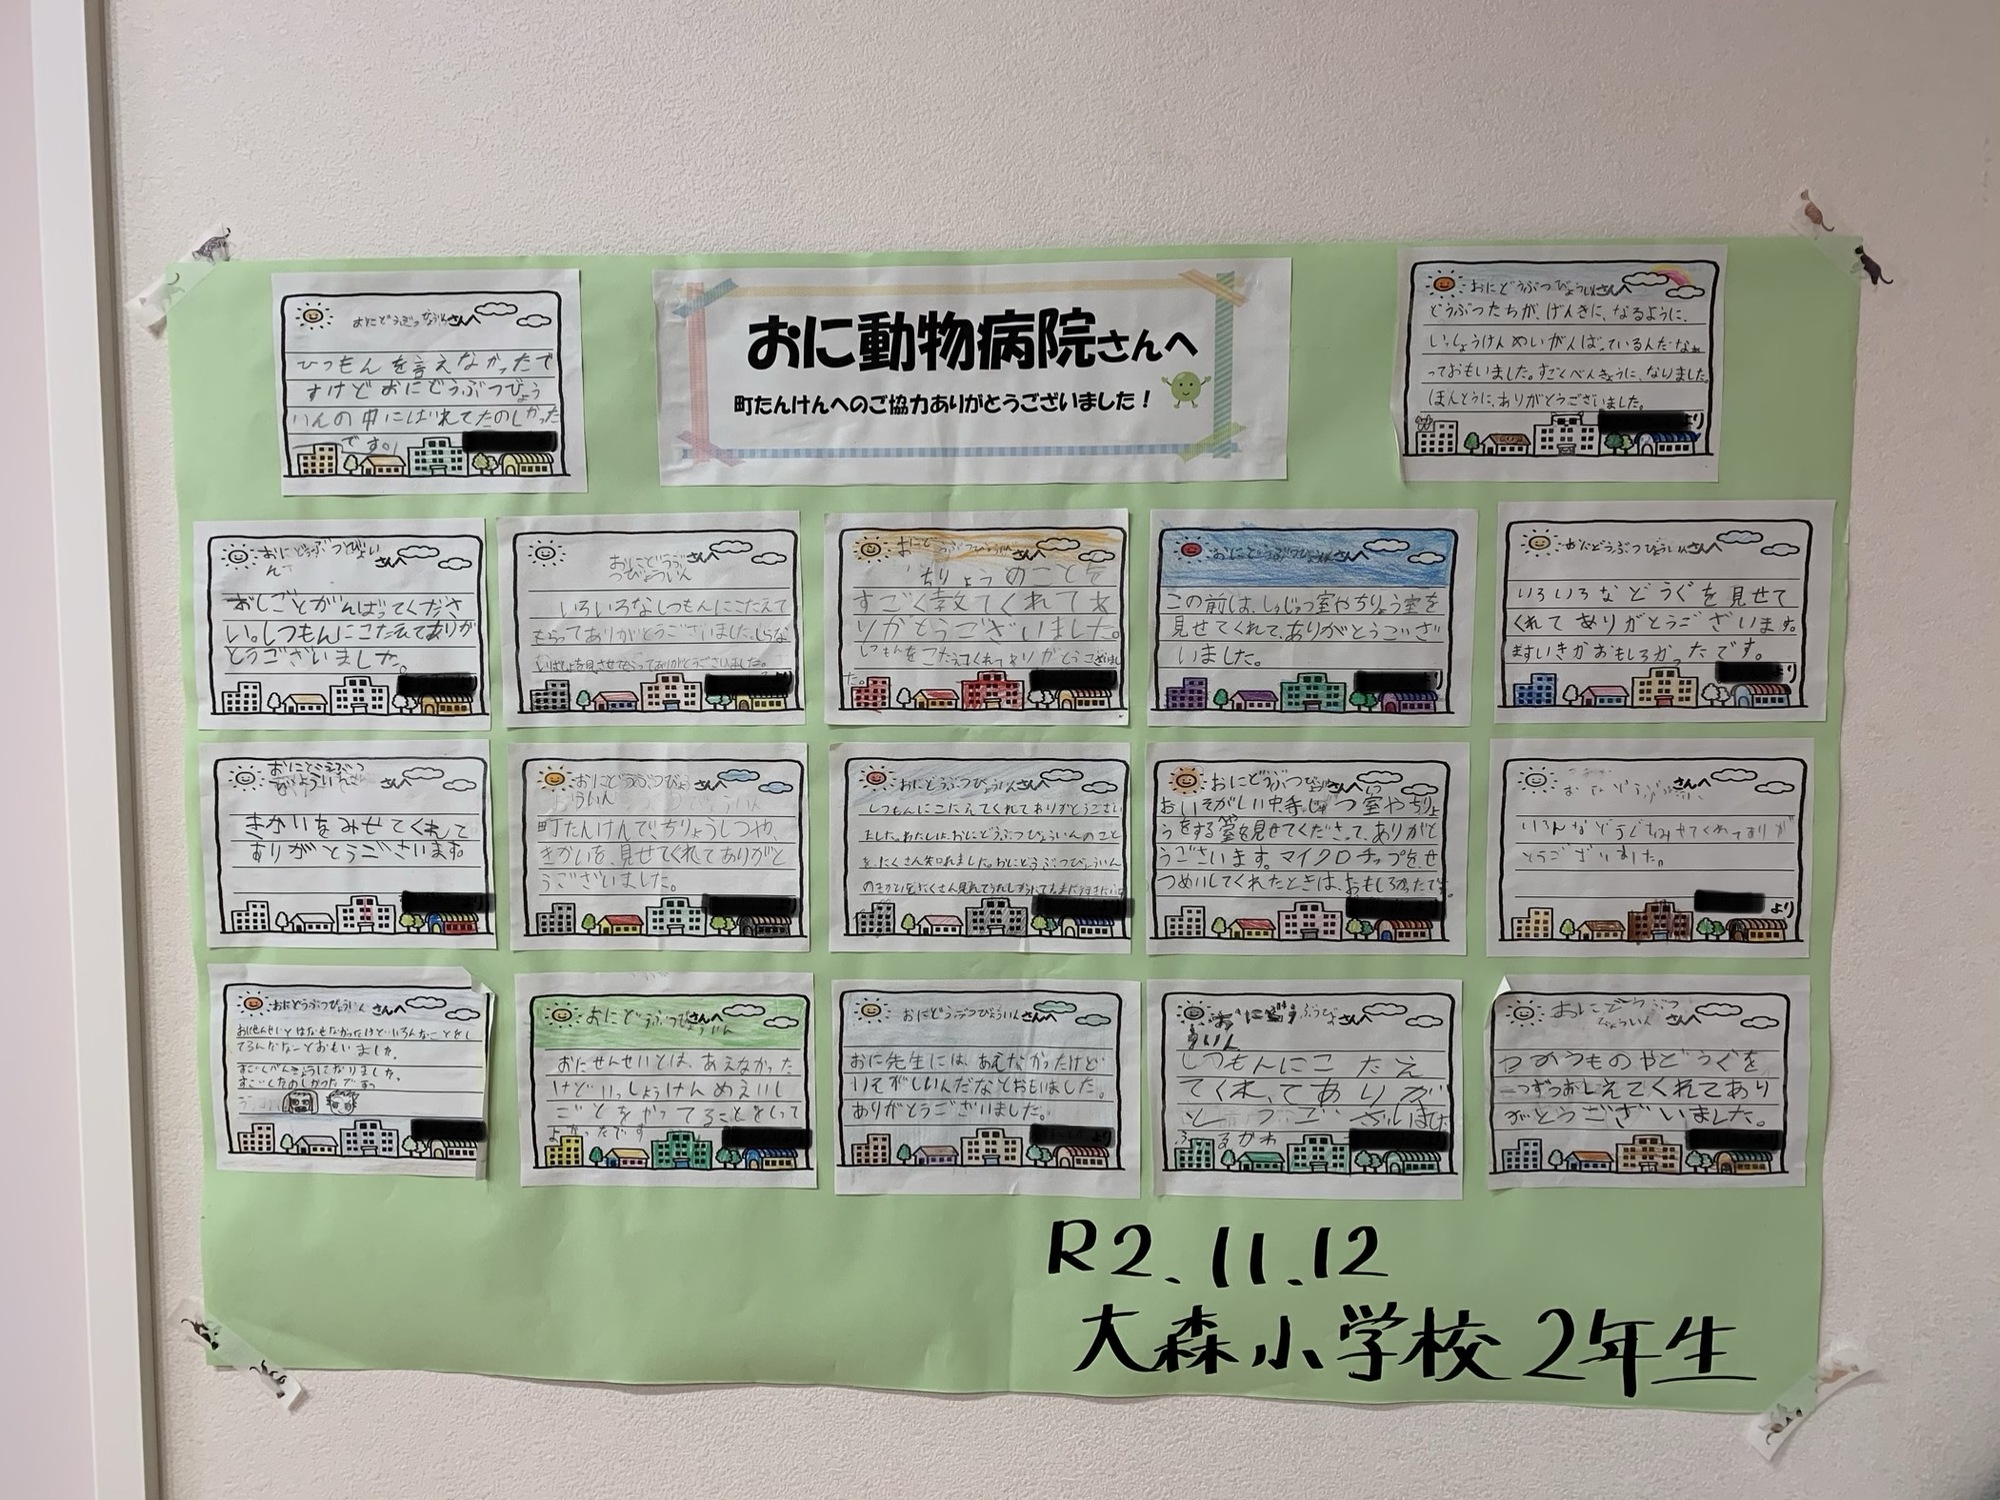 おにどうぶつびょういんさんへ
ひつもんを言えなかったで
すけどおにどうぶつびょう
いんの中にはいれてたのしかった
です。
おに動物病院さんへ
町たんけんへのご協力ありがとうございました!
おにどうぶつびょういんさんへ
どうぶつたちが、げんきに、なるように、
いっしょうけんめいがんばっているんだなぁ
っておもいました。すごくべんきょうに、なりました。
ほんとうに、ありがとうございました。
より
おにどうぶつびょい
ん さんへ
おしごとがんばってくださ
い。しつもんにこたえてありが
とうございました。
おにどうぶ
つびょういん さんへ
いろいろなしつもんにこたえて
もらってありがとうございました。しらな
いばしょを見させてもらってありがとうございました。
おにどうぶつびょういんさんへ
ちりょうのことを
すごく教てくれてあ
りがとうございました。
しつもんをこたえてくれてありがとうございまし
た。
おにどうぶつびょういんさんへ
この前は、しゅじゅつ室やちりょう室を
見せてくれて、ありがとうござ
いました。
おにどうぶつびょういんさんへ
いろいろなどうぐを見せて
くれてありがとうございます。
ますいきがおもしろかったです。
より
おにどうぶつ
びょういんさんへ
きかいをみせてくれて
ありがとうございます。
おにどうぶつびょ
ういん さんへ
町たんけんで、ちりょうしつや、
きかいを、見せてくれてありがと
うございました。
おにどうぶつびょういんさんへ
しつもんにこたえてくれてありがとうござい
ました。わたしは、おにどうぶつびょういんのこと
を、たくさん知れました。おにどうぶつびょういん
のきかいをたくさん見れてうれしかったです。
おにどうぶつびょういんさんへ
おいそがしい中手じゅつ室やちりょ
うをする室を見せてくださって、ありがと
うございます。マイクロチップをせ
つめいしてくれたときは、おもしろかったです。
おにどうぶつ さんへ
いろんなどうぐみせてくれてありが
とうございました。
より
おにどうぶつびょういん さんへ
おにせんせいとはなせなかったけどいろんなことをし
てるんだなーとおもいました。
すごいべんきょうになりました。
すごいたのしかったですっ
おにどうぶつびょういんさんへ
おにせんせいとは、あえなかった
けどいっしょけんめえいし
ごとをやってることをしって
よかったです
おにどうぶつびょういんさんへ
おに先生には、あえなかったけど
いそがしいんだなとおもいました。
ありがとうございました。
より
おにどうぶつびょ さんへ
ういん
しつもんにこたえ
てくれてありが
とうございました
ふるかわ
おにどうぶつ
びょういん さんへ
つかうものやどうぐを
一つずつおしえてくれてあり
がとうございました。
R2.11.12
大森小学校2年生